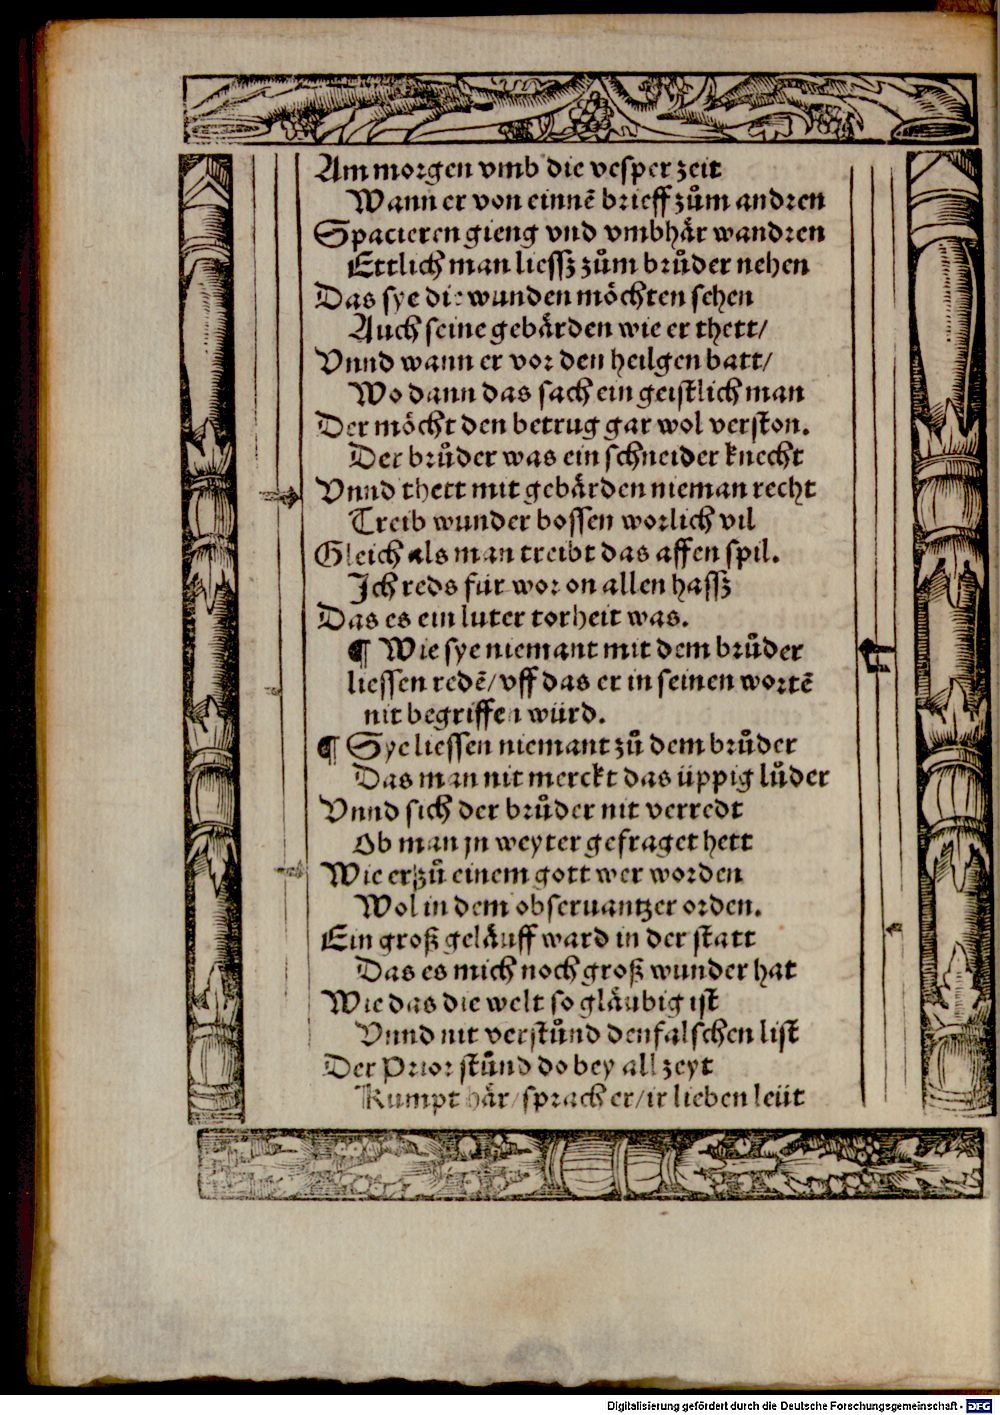 Am morgen vmb die vesper zeit
Wann er von einnē brieff zům andren
Spacieren gieng vnd vmbhär wandren
Ettlich man liessz zům brůder nehen
Das sye die wunden möchten sehen
Auch seine gebärden wie er thett/
Vnnd wann er vor den heilgen batt/
Wo dann das sach ein geistlich man
Der möcht den betrug gar wol verston.
Der brůder was ein schneider knecht
Vnnd thett mit gebärden nieman recht
Treib wunder bossen worlich vil
Gleich als man treibt das affen spil.
Ich reds für wor on allen hassz
Das es ein luter torheit was.
¶ Wie sye niemant mit dem brůder
liessen redē/ vff das er in seinen wortē
nit begriffen würd.
¶ Sye liessen niemant zů dem brůder
Das man nit merckt das üppig lůder
Vnnd sich der brůder nit verredt
Ob man jn weyter gefraget hett
Wie er zů einem gott wer worden
Wol in dem obseruantzer orden.
Ein groß geläuff ward in der statt
Das es mich noch groß wunder hat
Wie das die welt so gläubig ist
Vnnd nit verstůnd den falschen list
Der Prior stůnd do bey all zeyt
Kumpt här/ sprach er/ ir lieben leüt
Digitalisierung gefördert durch die Deutsche Forschungsgemeinschaft - DFG